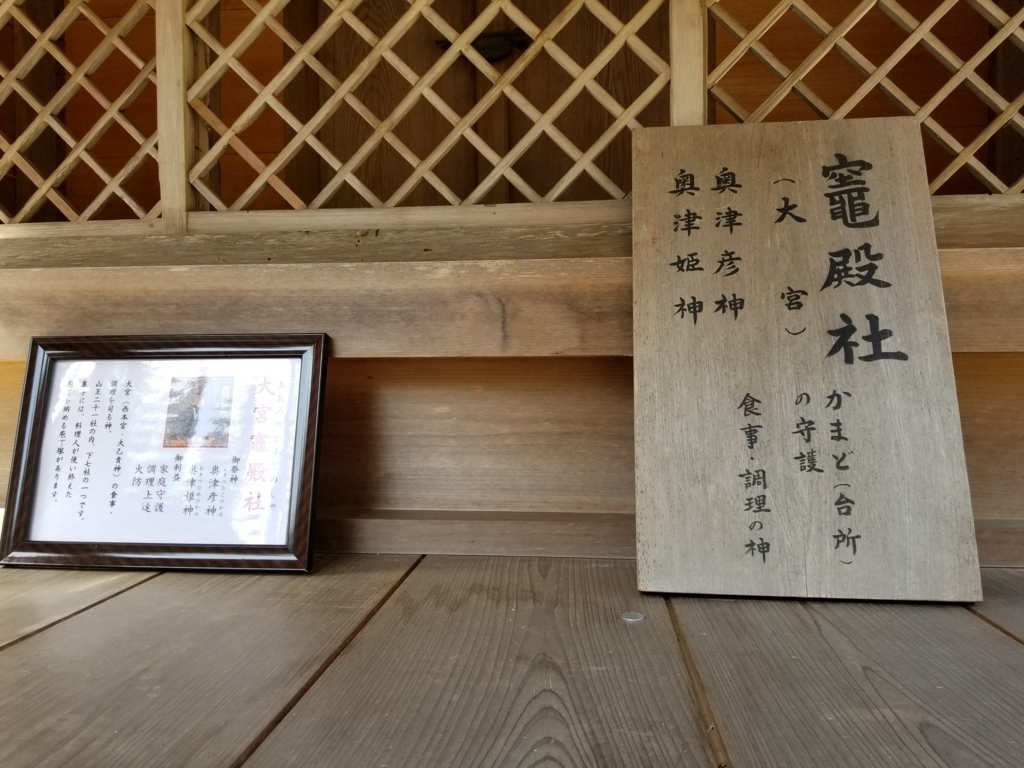 竈殿社
(大宮)
奥津彦神
奥津姫神
かまど(台所)
の守護
食事・調理の神
大宮竈殿社
御祭神
奥津彦神
奥津姫神
御利益
家庭守護
調理上達
火防
大宮(西本宮・大己貴神)の食事・
調理を司る神。
山王二十一社の内、下七社の一つです。
裏手には、料理人が使い終えた
庖丁を納める庖丁塚があります。